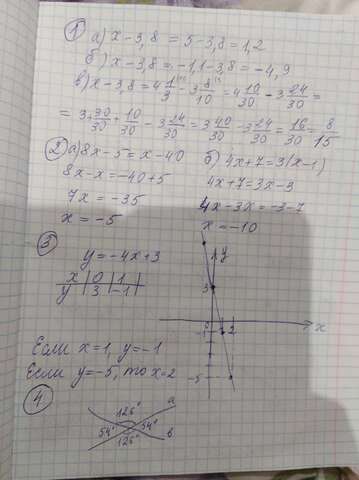 ① а) x-3,8 = 5-3,8 = 1,2
б) x-3,8 = -1,1-3,8 = -4,9
в) x-3,8 = 4 1/3 - 3 8/10 = 4 10/30 - 3 24/30 =
= 3 30/30 + 10/30 - 3 24/30 = 3 40/30 - 3 24/30 = 16/30 = 8/15
② а) 8x-5 = x-40
8x-x = -40+5
7x = -35
x = -5
б) 4x+7 = 3(x-1)
4x+7 = 3x-3
4x-3x = -3-7
x = -10
③
y = -4x+3
x | 0 | 1
y | 3 | -1
y
3
0
-1
1 2
x
-5
Если x=1, y=-1
Если y=-5, то x=2
④
126°
a
54° 54°
126°
b